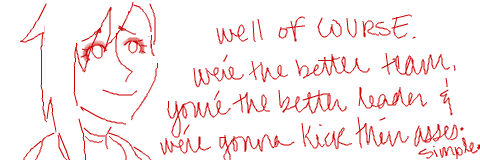 well of COURSE.
we're the better team,
you're the better leader &
we're gonna kick their asses.
simple.